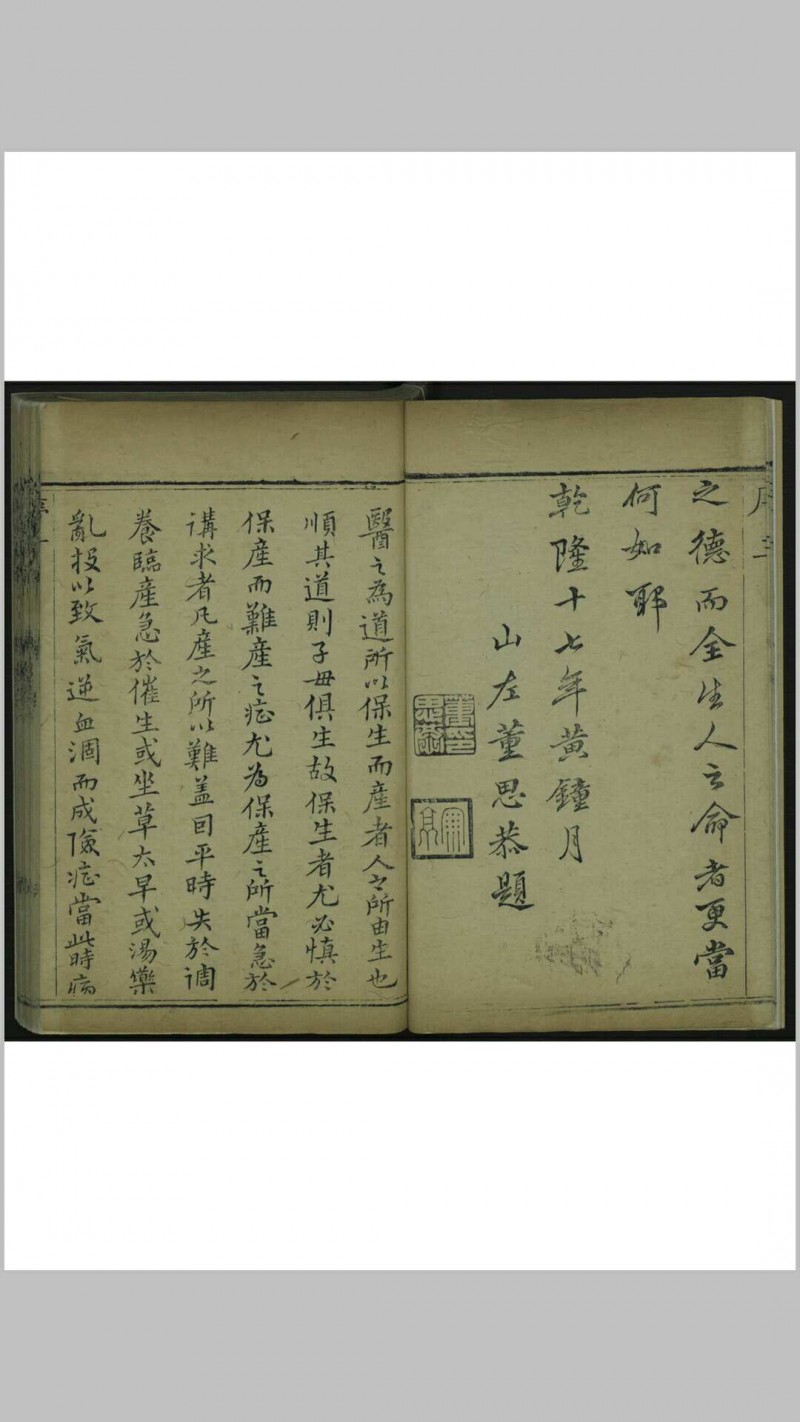 之德而全生人之命者更當
何如耶
乾隆十七年黃鐘月
山左董思恭題
醫之為道所以保生而產者人之所由生也
順其道則子母俱生故保生者尤必慎於
保產而難產之症尤為保產之所當急於
講求者凡產之所以難蓋因平時失於調
養臨產急於催生或坐草太早或湯藥
亂投以致氣逆血涸而成險症當此時病